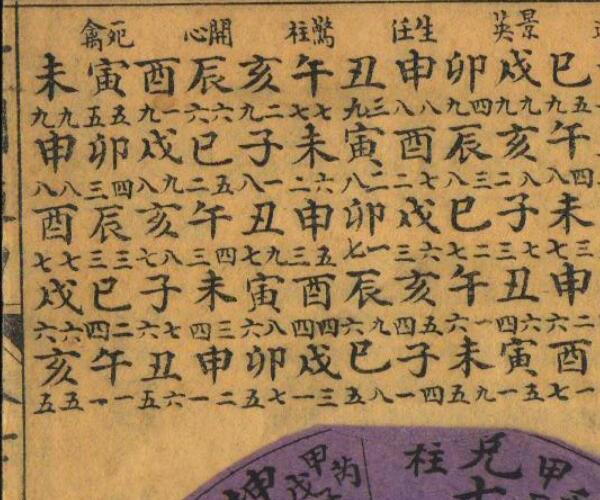 景英
生任
驚柱
開心
死禽
巳五九午四八未三七申二六酉
戌九九亥八二子七三丑六四寅五一
卯四九辰三八巳二七午一六未九五
申八八酉七二戌六三亥五四子四一
丑三九寅二八卯一七辰九六巳八五
午七七未六二申五三酉四四戌三一
亥二九子一八丑九七寅八六卯七五
辰六六巳五二午四三未三四申二一
酉一九戌九八亥八七子七六丑六五
寅五五卯四三辰三三巳二四午一一
未九九申八八酉七七戌六六亥五五
甲
柱
甲戊
坤